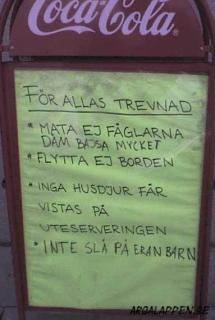 Coca-Cola
FÖR ALLAS TREVNAD
* MATA EJ FÅGLARNA
DÅM BAJSA MYCKET
* FLYTTA EJ BORDEN
* INGA HUSDJUR FÅR
VISTAS PÅ
UTESERVERINGEN
* INTE SLÅ PÅ ERAN BARN
ARGALAPPEN.SE